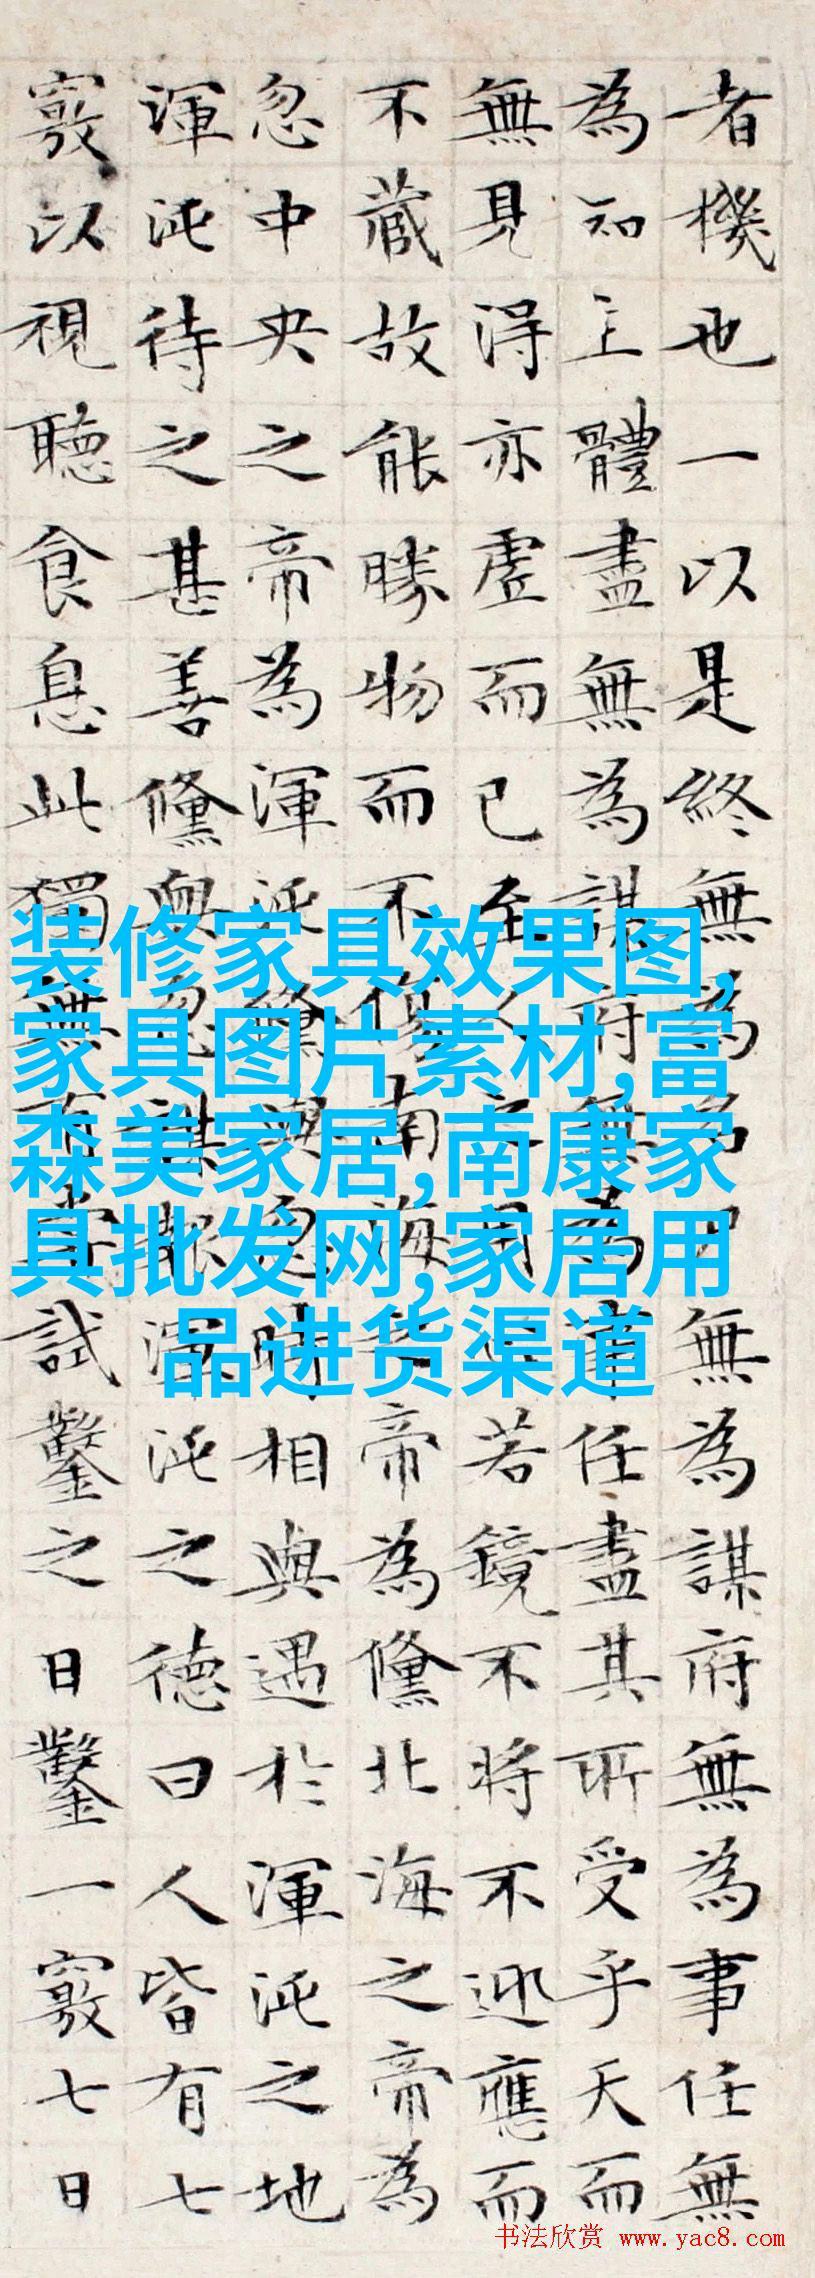 者機也一以是終無為名尸無為謀府無為事任無
為知主體盡無為謀府無為事任盡其所受乎天而
無見得亦虛而已至人之用心若鏡不將不迎應而
不藏故能勝物而不傷南海之帝為儵北海之帝為
忽中央之帝為渾沌儵與忽時相與遇於渾沌之地
渾沌待之甚善儵與忽謀報渾沌之德曰人皆有七
竅以視聽食息此獨無有嘗試鑿之日鑿一竅七日
装修家具效果图,
家具图片素材,富
森美家居,南康家
具批发网,家居用
品进货渠道
书法欣赏 www.yac8.com